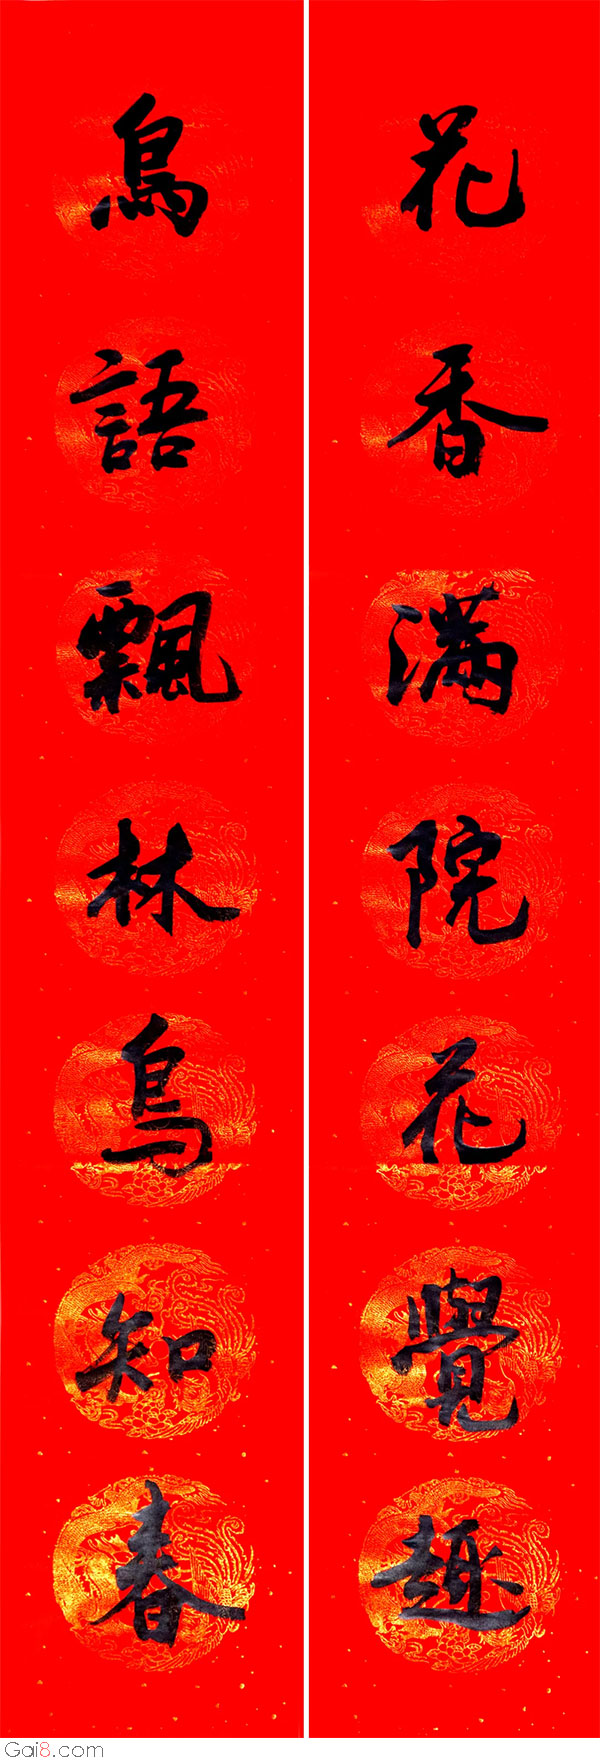 花香滿院花覺趣
鳥語飄林鳥知春
Gai8.com